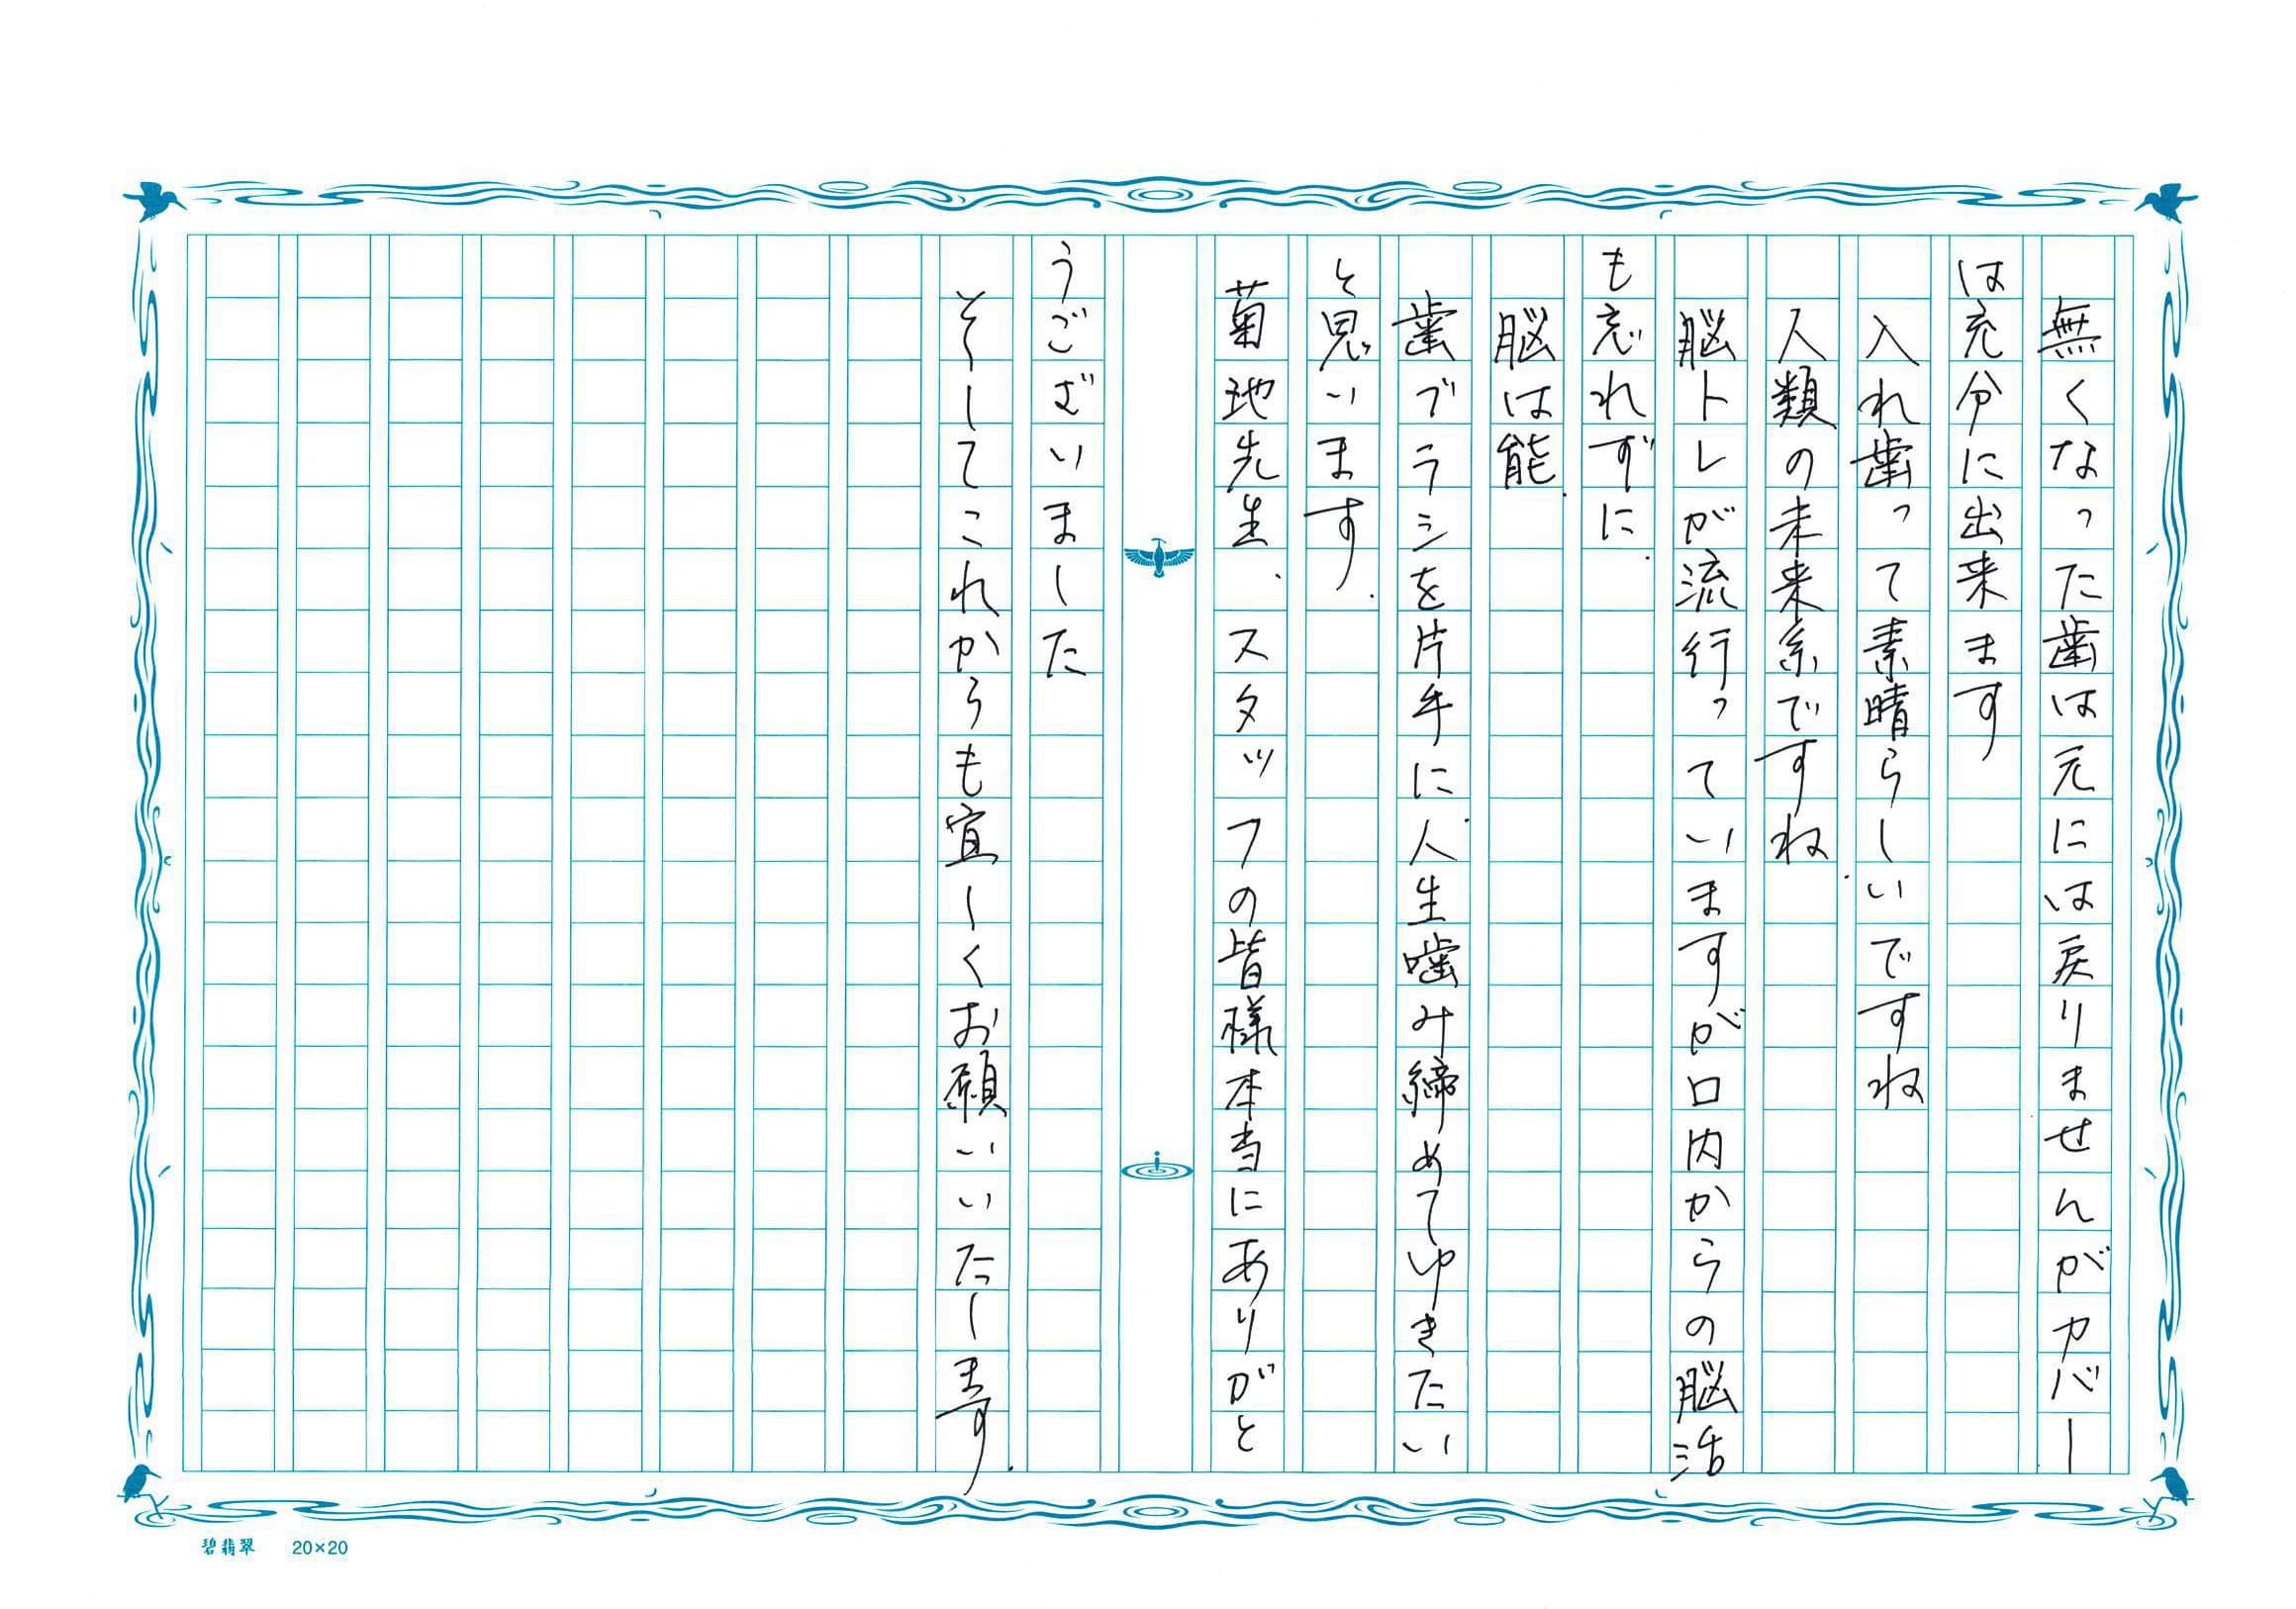 無くなった歯は元には戻りませんがカバー
は充分に出来ます
入れ歯って素晴らしいですね
人類の未来系ですね.
脳トレが流行っていますが口内からの脳活
も忘れずに.
脳は能.
歯ブラシを片手に人生噛み締めてゆきたい
と思います.
菊地先生、スタッフの皆様本当にありがと
うございました
そしてこれからも宜しくお願いいたします.
碧翡翠 20×20